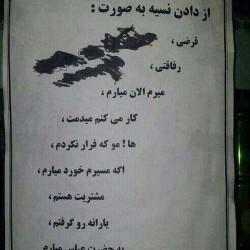 از دادن نسیه به صورت :
قرضی ،
رفاقتی ،
میرم الان میارم ،
کار می کنم میدمت ،
ها ! مو که فرار نکردم ،
اگه مسیرم خورد میارم ،
مشتریت هستم ،
یارانه رو گرفتم ،
به حضرت عباس میارم